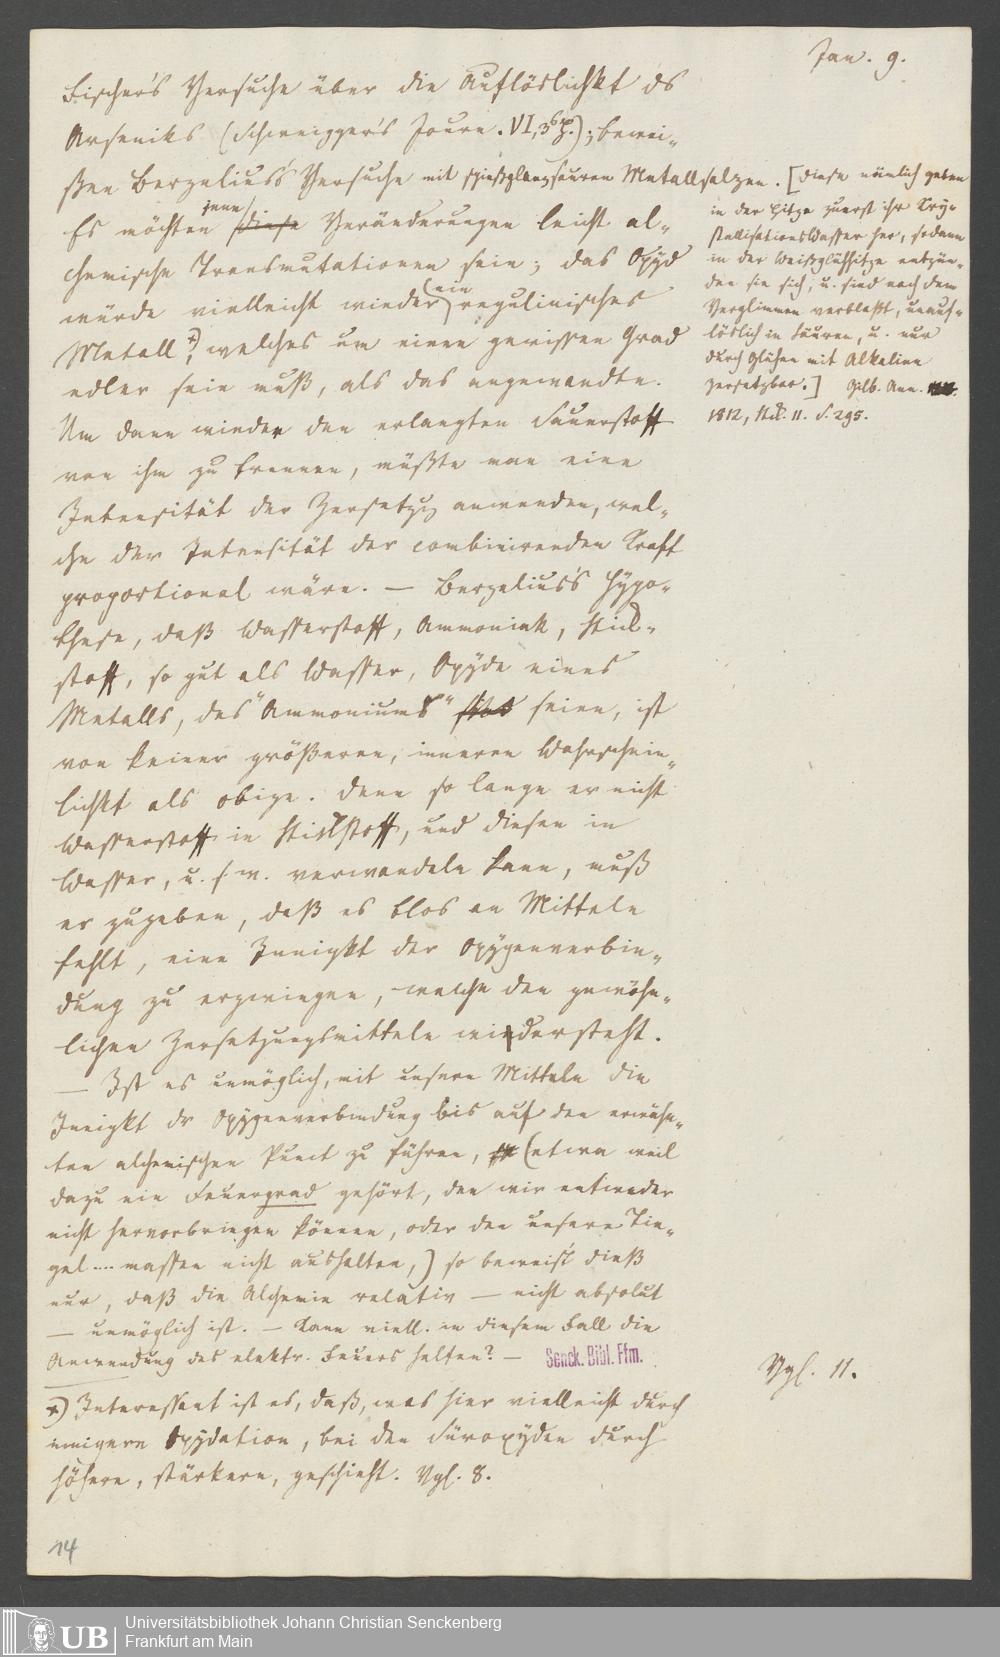 Jan. 9.
Fischer's Versuche über die Auflöslichkt ds
Arseniks (Schweigger's Journ. VI, 3); bewei-
ßen Berzelius's Versuche mit spießglanzsauren Metallsalzen. [Diese nämlich geben
in der Hitze zuerst ihr Kry-
stallisationswasser her, sodann
in der Weißglühhitze entzün-
den sie sich, u. sind nach dem
Verglimmen verblaßt, unauf-
löslich in Säuren, u. nur
durch Glühen mit Alkalien
zersetzbar.] Gilb. Ann.
1812, Stck. 11. S. 295.
Es möchten jene diese Veränderungen leicht al-
chemische Transmutationen sein; das Oxyd
würde vielleicht wieder ein regulinisches
Metall *), welches um einen gewissen Grad
edler sein muß, als das angewandte.
Um dann wieder den erlangten Sauerstoff
von ihm zu trennen, müßte man eine
Intensität der Zersetzg anwenden, wel-
che der Intensität der combinirenden Kraft
proportional wäre. — Berzelius's Hypo-
these, daß Wasserstoff, Ammoniak, Stick-
stoff, so gut als Wasser, Oxyde eines
Metalls, des "Ammoniums" seien, ist
von keiner größeren, inneren Wahrschein-
lichkt als obige. Denn so lange er nicht
Wasserstoff in Stickstoff, und diesen in
Wasser, u. s. w. verwandeln kann, muß
er zugeben, daß es blos an Mitteln
fehlt, eine Innigkt der Oxygenverbin-
dung zu erzwingen, welche den gewöhn-
lichen Zersetzungsmitteln widersteht.
— Ist es unmöglich, mit unsern Mitteln die
Innigkt dr Oxygenverbindung bis auf den erwähn-
ten alchemischen Punct zu führen, (etwa weil
dazu ein Feuergrad gehört, den wir entweder
nicht hervorbringen können, oder den unsere Tie-
gel .... massen nicht aushalten,) so beweist dieß
nur, daß die Alchemie relativ — nicht absolut
— unmöglich ist. — Kann viell. in diesem Fall die
Anwendung des elektr. Feuers helfen? —
Senck. Bibl. Ffm.
Vgl. 11.
*) Interessant ist es, daß, was hier vielleicht durch
innigere Oxydation, bei den Süroxyden durch
höhere, stärkere, geschieht. Vgl. 8.
14
UB
Universitätsbibliothek Johann Christian Senckenberg
Frankfurt am Main